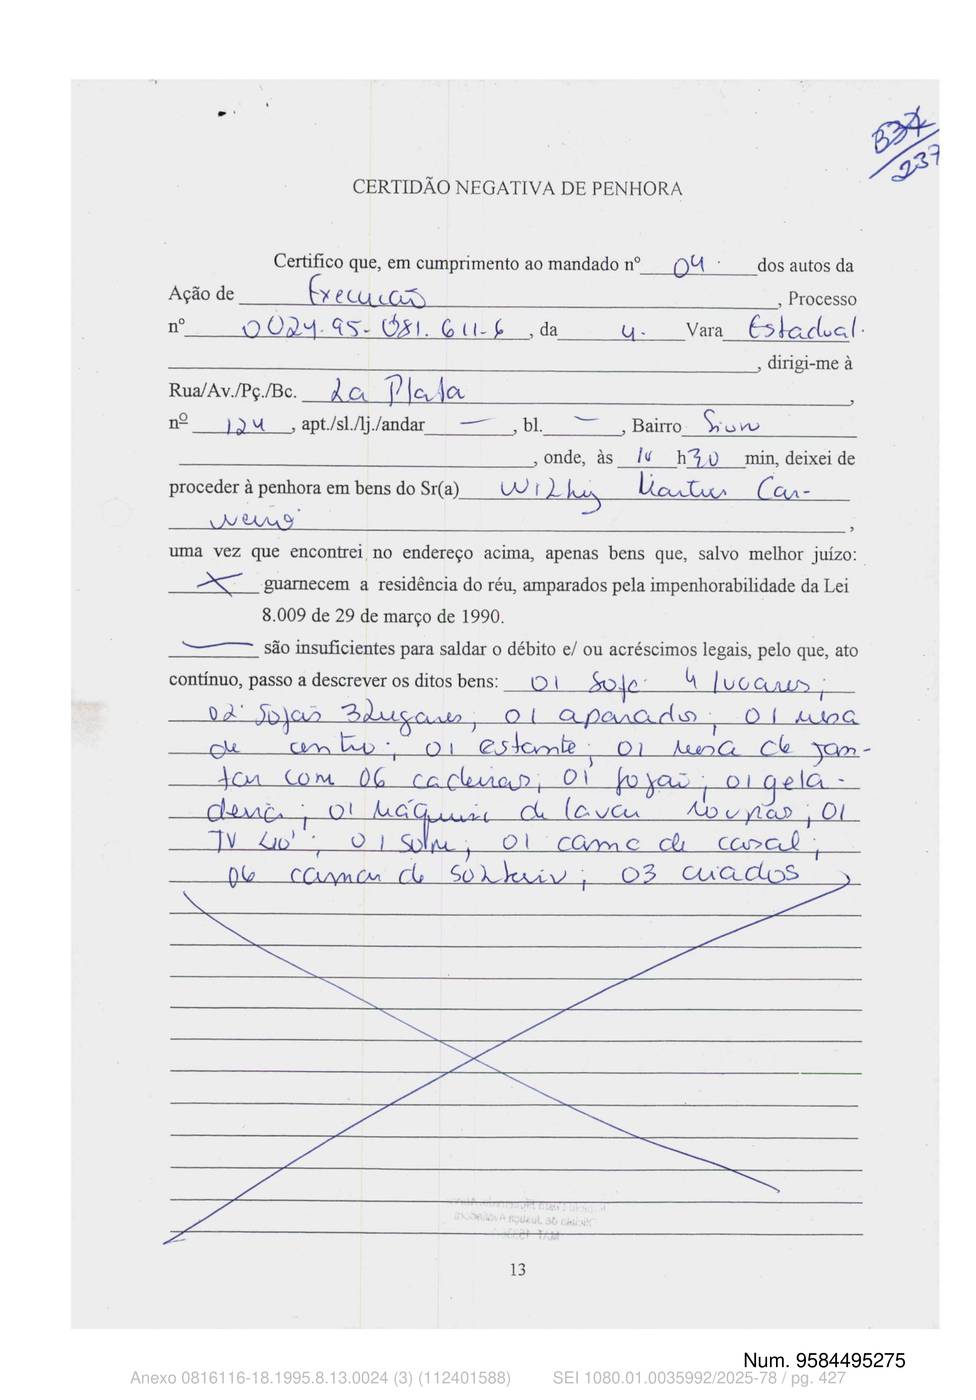 237
CERTIDÃO NEGATIVA DE PENHORA
Certifico que, em cumprimento ao mandado nº 04 dos autos da
Ação de Execução, Processo
nº 0024.95-081.611-6, da 4. Vara Estadual.
, dirigi-me à
Rua/Av./Pç./Bc. La Plata,
nº 124, apt./sl./lj./andar —, bl. —, Bairro Sion
, onde, às h30 min, deixei de
proceder à penhora em bens do Sr(a) Martins Car-
neiro,
uma vez que encontrei no endereço acima, apenas bens que, salvo melhor juízo:
X guarnecem a residência do réu, amparados pela impenhorabilidade da Lei
8.009 de 29 de março de 1990.
— são insuficientes para saldar o débito e/ ou acréscimos legais, pelo que, ato
contínuo, passo a descrever os ditos bens: 01 sofá 4 lugares;
02 sofás 3 lugares; 01 aparador; 01 mesa
de centro; 01 estante; 01 mesa de jan-
tar com 06 cadeiras; 01 fogão; 01 gela-
deira; 01 máquina de lavar roupas; 01
TV 40"; 01 ; 01 cama de casal;
06 camas de solteiro; 03 criados
13
Num. 9584495275
Anexo 0816116-18.1995.8.13.0024 (3) (112401588) SEI 1080.01.0035992/2025-78 / pg. 427